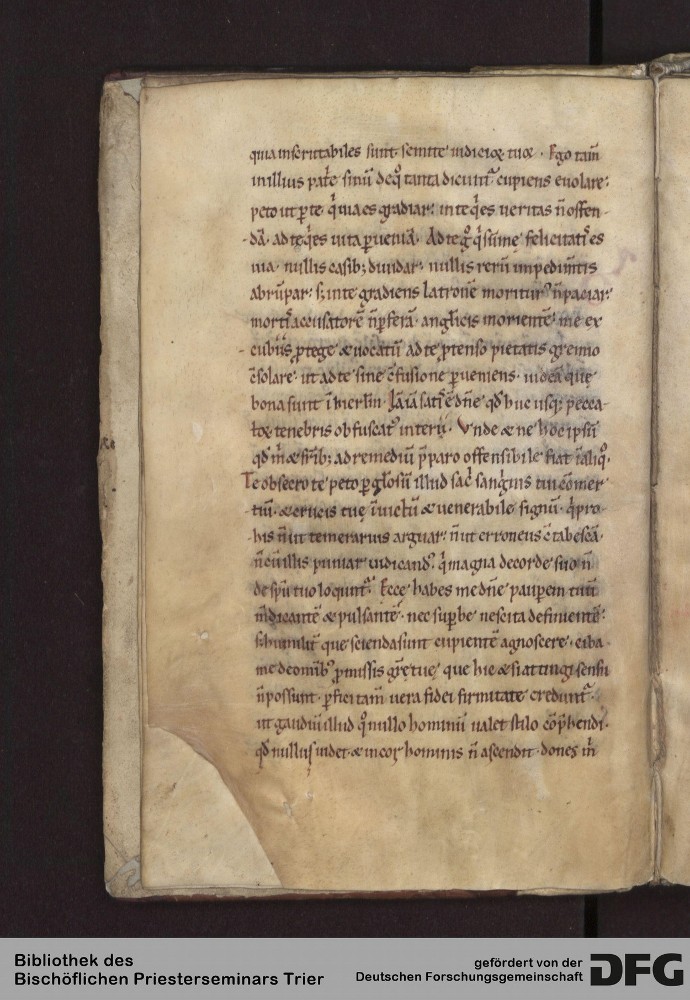 quia inscrutabiles sunt semitę iudicioꝝ tuoꝝ. Ego tam̄
in illius pat̄e sinū de qͦ tanta dicunt᷑ cupiens euolare:
peto ut ꝑ te qͥ uia es gradiar: in te qͥ es ueritas n̄ offen
dā. ad te qͥ es uita ꝑueniā. Ad te qͥ sūme felicitatis es
uia. nullis casibꝫ nullis rerū impedim̄tis
abrūpar: sꝫ in te gradiens latronē n̄ paciar:
mortis accusatorē n̄ ꝑferā. angelicis morientē me ex
cubiis ꝓtege & uocatū ad te ꝓtenso pietatis gremio
c̄solare. ut ad te sine c̄fusione ꝑueniens. uideā quę
bona sunt ī hierl̄m. Iā iā satis ē dn̄e qd̄ huc usqꝫ pecca
toꝝ tenebris obfuscatꝰ interii. Vnde & ne hoc ipsū
qd̄ m̄ & fr̄ibꝫ ad remediū p̄paro offensibile fiat ī aliqͦ.
Te obsecro te peto ꝑ gl̄osū illud sac̄ sanguinis tui cōmer
tiū. & crucis tuę īuictū & uenerabile signū. qͥ pro
his n̄ ut temerarius arguar: n̄ ut erroneus c̄tabescā.
n̄ cū illis puniar iudicandꝰ. qͥ magna de corde suo n̄
de sp̄u tuo loquunt᷑. Ecce habes me dn̄e pauperem tuū
m̄dicantē & pulsantē. nec supbe nescita definientē:
sꝫ humilit̄ que scienda sunt cupientē agnoscere. ciba
me de om̄ibꝰ ꝓmissis gr̄ę tuę. que hic & si attingi sensu
n̄ possunt. ꝑfici tam̄ uera fidei firmitate credunt᷑.
ut gaudiū illud qͦ nullo hominū ualet stilo cōp̄hendi.
qd̄ nullus uidet. & in cor hominis n̄ ascendit. donec m̄
Bibliothek des
Bischöflichen Priesterseminars Trier
gefördert von der
Deutschen Forschungsgemeinschaft
DFG